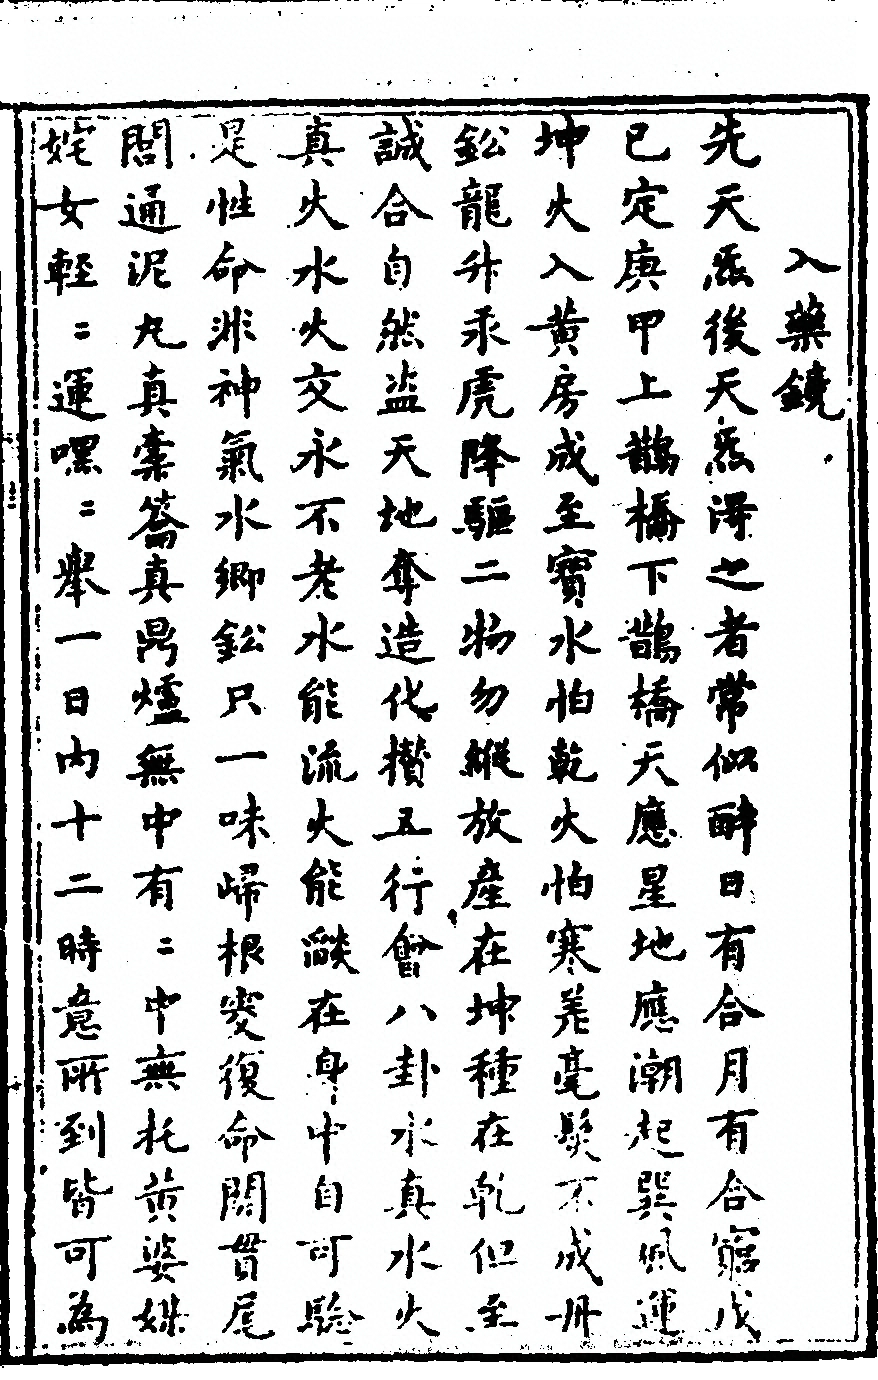 入藥鏡
先天炁後天炁得之者常似醉日有合月有合窮戊
已定庚甲上鵲橋下鵲橋天應星地應潮起巽風運
坤火入黃房成至寶水怕乾火怕寒差毫髮不成丹
鈆龍升汞虎降驅二物勿縱放產在坤種在乾但至
誠合自然盜天地奪造化攢五行會八卦水真水火
真火水火交永不老水能流火能燄在身中自可驗
是性命非神氣水鄉鈆只一味歸根竅復命關貫尾
閭通泥丸真橐籥真鼎爐無中有〻中無托黃婆媒
姹女輕〻運嘿〻舉一日內十二時意所到皆可為